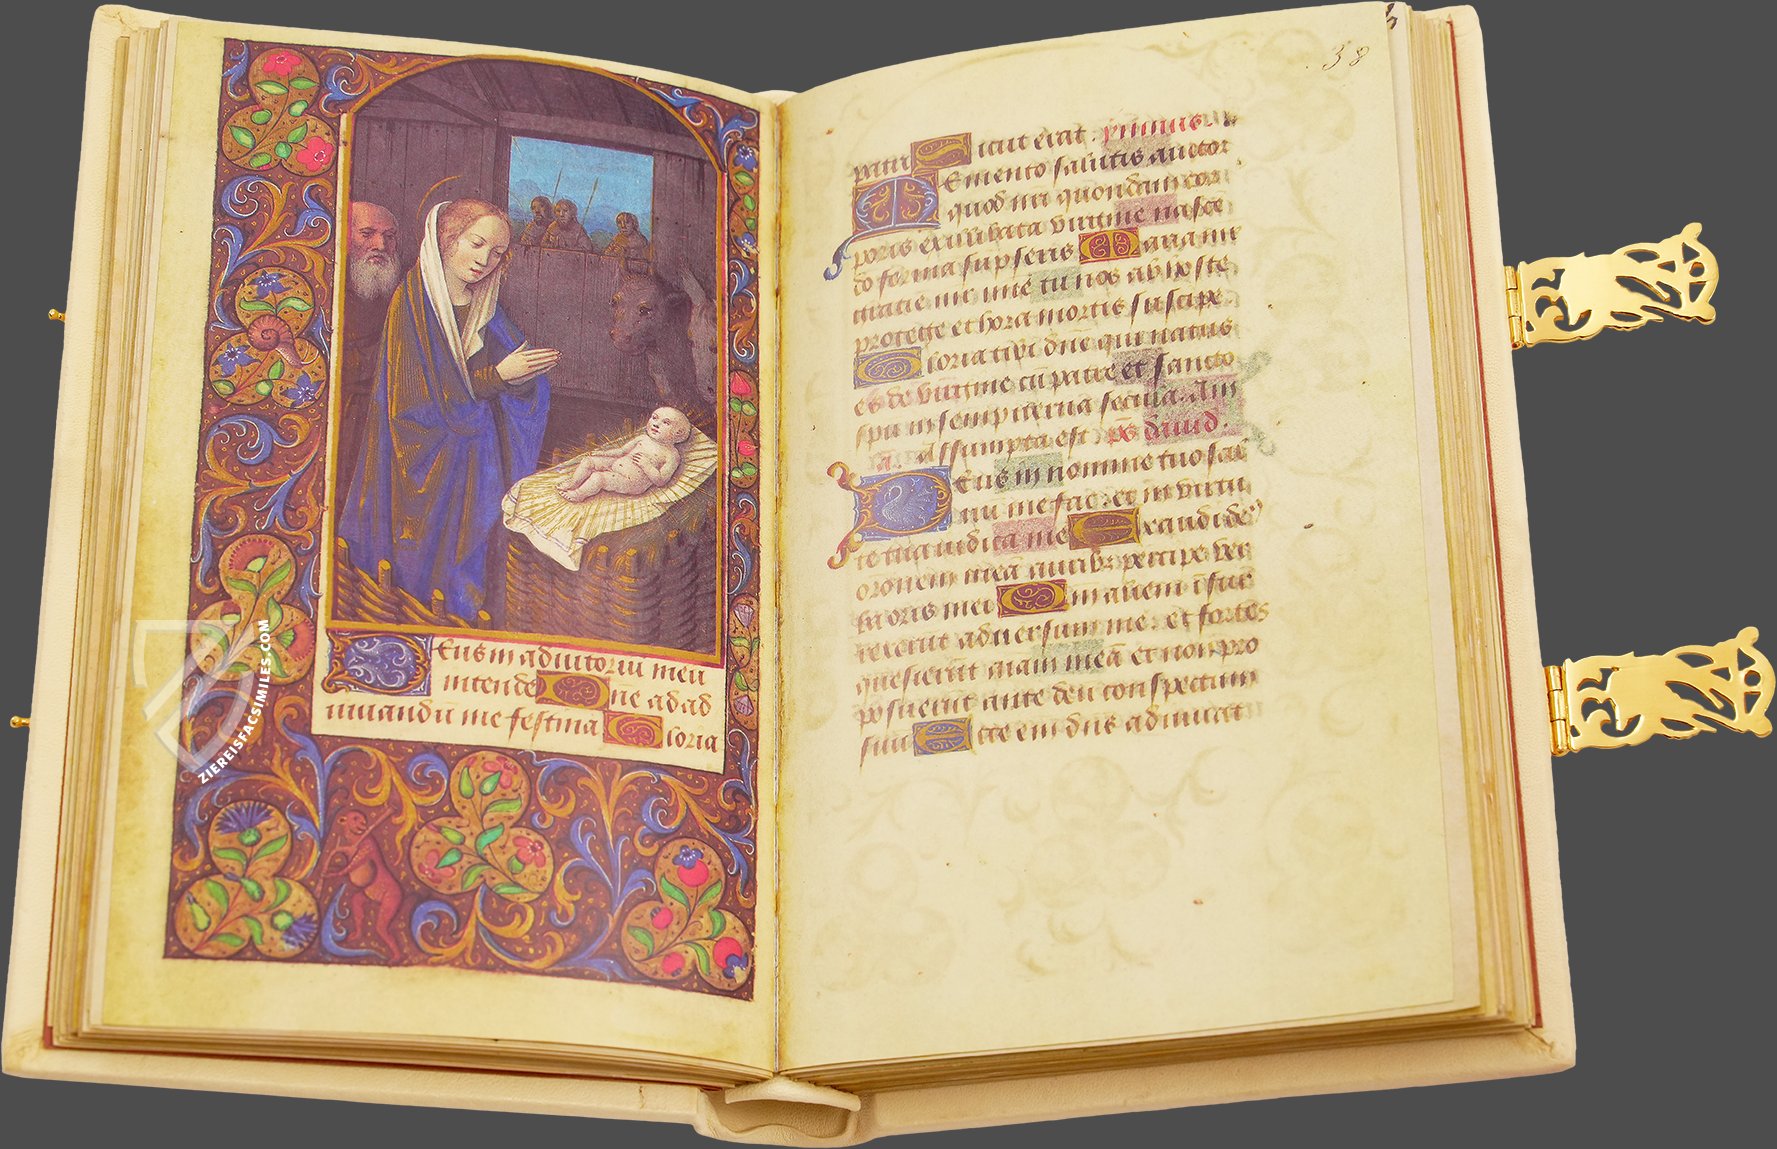 Eus in adiutoriū meū
intende Do ne ad ad
iuuandū me festina Gloria
ZIEREISFACSIMILES.COM
38
patri Sicut erat. ymnus
Memento salutis auctor
quod nri quondam cor
poris ex illibata virgine nasce
do formā sūpseris Maria mr
gratie mr mie tu nos ab hoste
protege et hora mortis suscipe
Gloria tibi dñe qui natus
es de virgine cū patre et sancto
spū in sempiterna secula. Am
añ. Assumpta est ps dauid.
Deus in nomine tuo sal
uū me fac: et in virtu
te tua iudica me Exaudi de9
oronem meā auribz percipe ver
ba oris mei Qm alieni ĩsur
rexerūt aduersum me: et fortes
quesierūt aiam meā et non pro
posuerūt ante deū conspectum
suū Ecce enī dñs adiuuat